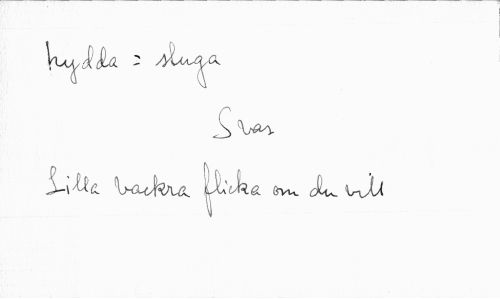 hydda = stuga
Svar
Lilla vackra flicka om du vill